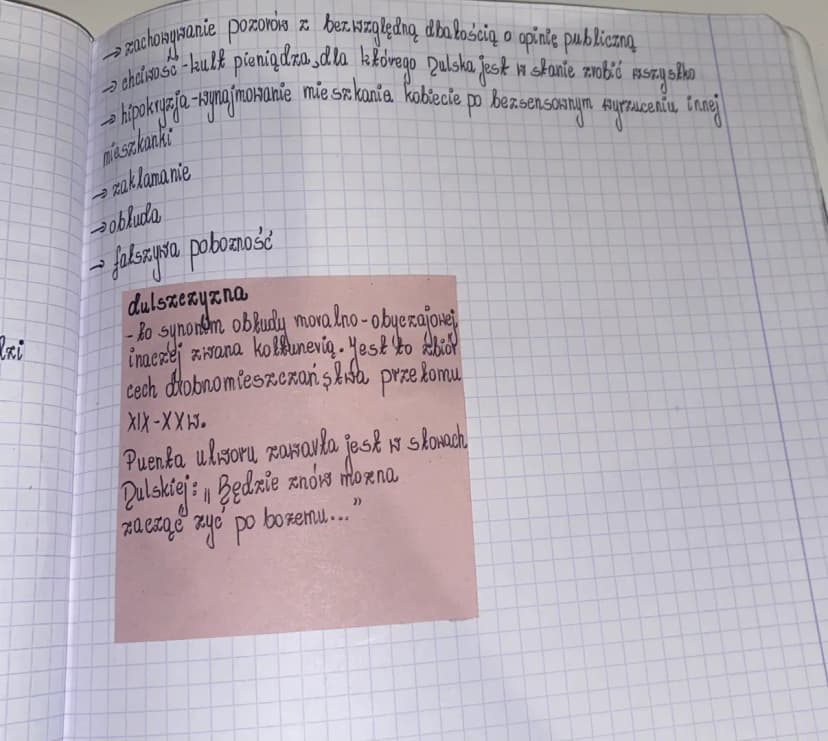 → zachowywanie pozorów z bezwzględną dbałością o opinię publiczną
→ chciwość - kult pieniądza, dla którego Dulska jest w stanie zrobić wszystko
→ hipokryzja - wynajmowanie mieszkania kobiecie po bezsensownym wyrzuceniu innej
mieszkanki
→ zakłamanie
→ obłuda
→ fałszywa pobożność
dulszczyzna
- to synonim obłudy moralno-obyczajowej,
inaczej zwana kołtunerią. Jest to zbiór
cech drobnomieszczaństwa przełomu
XIX-XXw.
Puenta utworu zawarta jest w słowach
Dulskiej: „Będzie znów można
zacząć żyć po bożemu..."